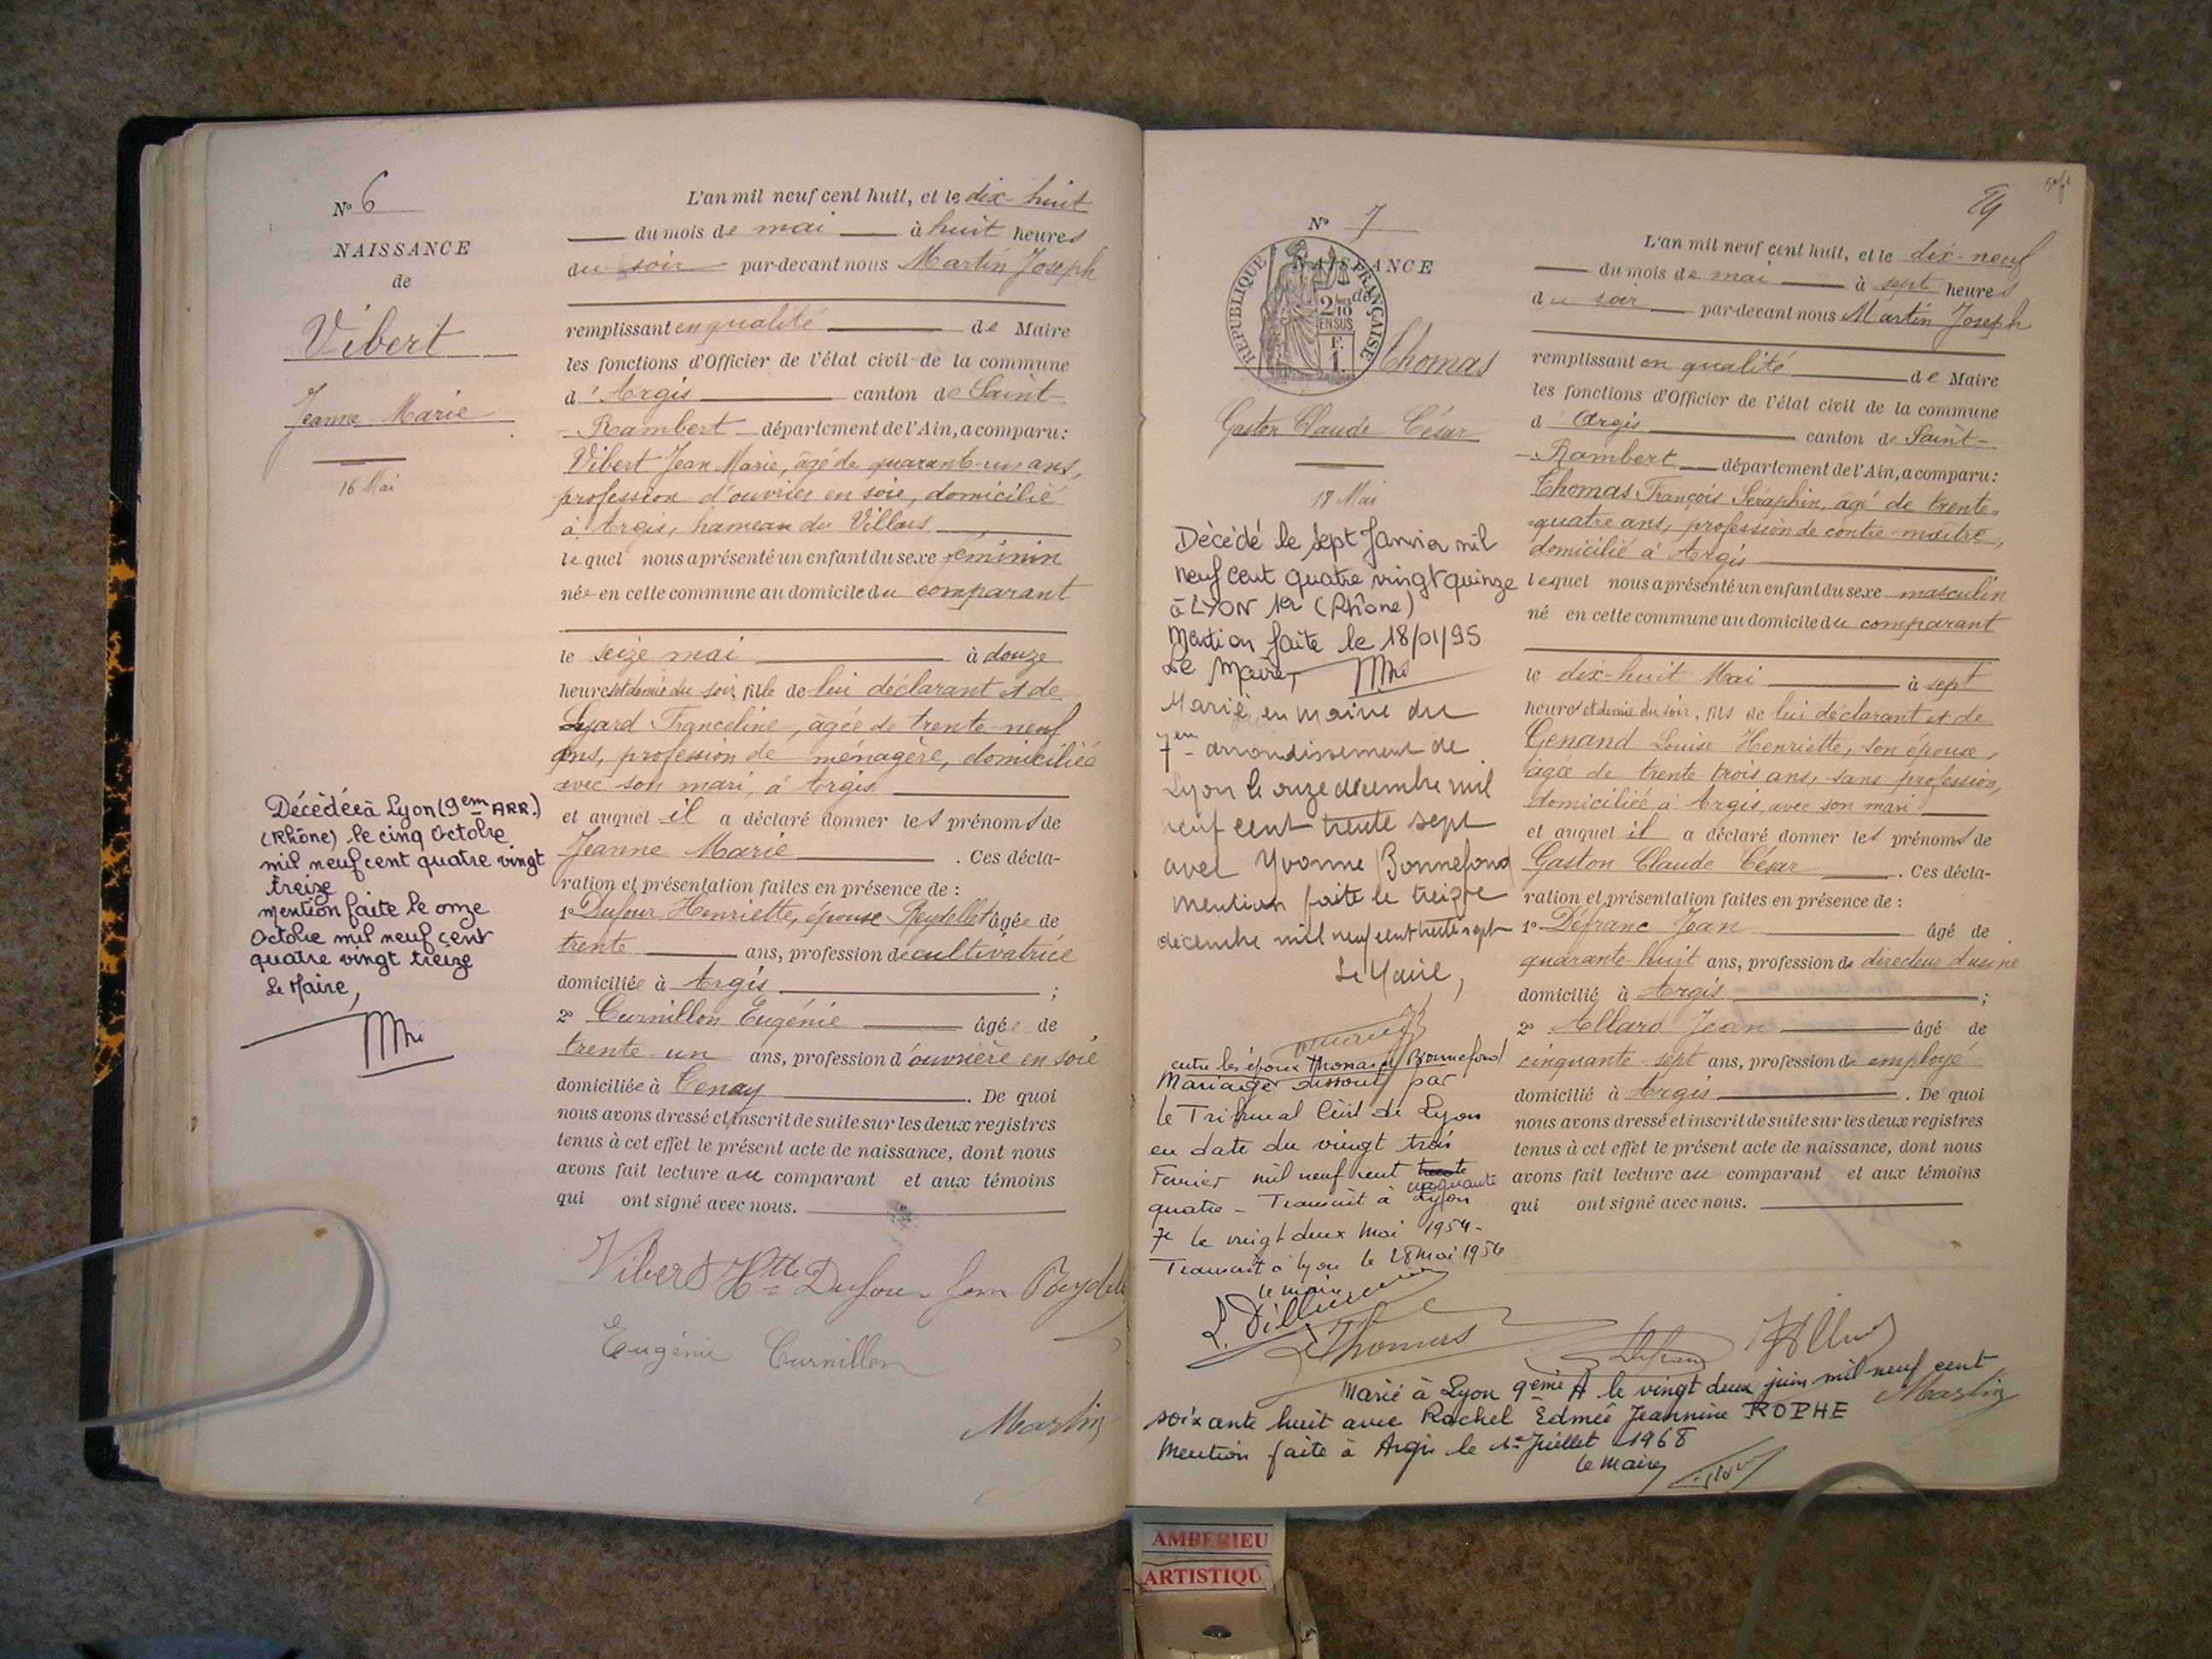 N° 6
NAISSANCE
de
Vibert
Jeanne Marie
16 Mai
Décédée à Lyon (9em ARR.)
(Rhône) le cinq Octobre
mil neuf cent quatre vingt
treize
mention faite le onze
Octobre mil neuf cent
quatre vingt treize
Le Maire,
L'an mil neuf cent huit, et le dix-huit
du mois de mai à huit heures
du soir par-devant nous Martin Joseph
remplissant en qualité de Maire
les fonctions d'Officier de l'état civil de la commune
d'Argis canton de Saint-
-Rambert département de l'Ain, a comparu:
Vibert Jean Marie, âgé de quarante-un ans,
profession d'ouvrier en soie, domicilié
à Argis, hameau du Villars
lequel nous a présenté un enfant du sexe féminin
née en cette commune au domicile du comparant
le seize mai à douze
heures et demie du soir, fille de lui déclarant et de
Lyard Franceline, âgée de trente-neuf
ans, profession de ménagère, domiciliée
avec son mari, à Argis
et auquel il a déclaré donner les prénoms de
Jeanne Marie . Ces décla-
ration et présentation faites en présence de :
1° Dufour Henriette, épouse Reydellet âgée de
trente ans, profession de cultivatrice
domiciliée à Argis ;
2° Curnillon Eugénie âgée de
trente-un ans, profession d'ouvrière en soie
domiciliée à Tenay . De quoi
nous avons dressé et inscrit de suite sur les deux registres
tenus à cet effet le présent acte de naissance, dont nous
avons fait lecture au comparant et aux témoins
qui ont signé avec nous.
Vibert Htte Dufour fem Reydellet
Eugénie Curnillon
Martin
N° 7
NAISSANCE
de
REPUBLIQUE FRANÇAISE
2/10 EN SUS
F. 1.
Thomas
Gaston Claude César
18 Mai
Décédé le sept Janvier mil
neuf cent quatre vingt quinze
à LYON 1er (Rhône)
Mention faite le 18/01/95
Le Maire,
Marié en mairie du
7em arrondissement de
Lyon le onze décembre mil
neuf cent trente sept
avec Yvonne Bonnefond
Mention faite le treize
décembre mil neuf cent trente sept
Le Maire,
entre les époux Thomas et Bonnefond
Mariage dissout par
le Tribunal Civil de Lyon
en date du vingt trois
Fevrier mil neuf cent trente cinquante
quatre - Transcrit à Lyon
7e le vingt deux Mai 1954 -
Transcrit à Lyon le 28 Mai 1954
le maire
L'an mil neuf cent huit, et le dix-neuf
du mois de mai à sept heures
du soir par-devant nous Martin Joseph
remplissant en qualité de Maire
les fonctions d'Officier de l'état civil de la commune
d'Argis canton de Saint-
-Rambert département de l'Ain, a comparu:
Thomas François Séraphin, âgé de trente-
-quatre ans, profession de contre-maître,
domicilié à Argis
lequel nous a présenté un enfant du sexe masculin
né en cette commune au domicile du comparant
le dix-huit Mai à sept
heures et demie du soir, fils de lui déclarant et de
Genand Louise Henriette, son épouse,
âgée de trente-trois ans, sans profession,
domiciliée à Argis, avec son mari
et auquel il a déclaré donner les prénoms de
Gaston Claude César . Ces décla-
ration et présentation faites en présence de :
1° Défranc Jean âgé de
quarante-huit ans, profession de directeur d'usine
domicilié à Argis ;
2° Allard Jean âgé de
cinquante-sept ans, profession de employé
domicilié à Argis . De quoi
nous avons dressé et inscrit de suite sur les deux registres
tenus à cet effet le présent acte de naissance, dont nous
avons fait lecture au comparant et aux témoins
qui ont signé avec nous.
Thomas
Martin
Marié à Lyon 9eme A le vingt deux juin mil neuf cent
soixante huit avec Rachel Edmée Jeannine ROPHE
Mention faite à Argis le 1er Juillet 1968
le maire
AMBERIEU
ARTISTIQU